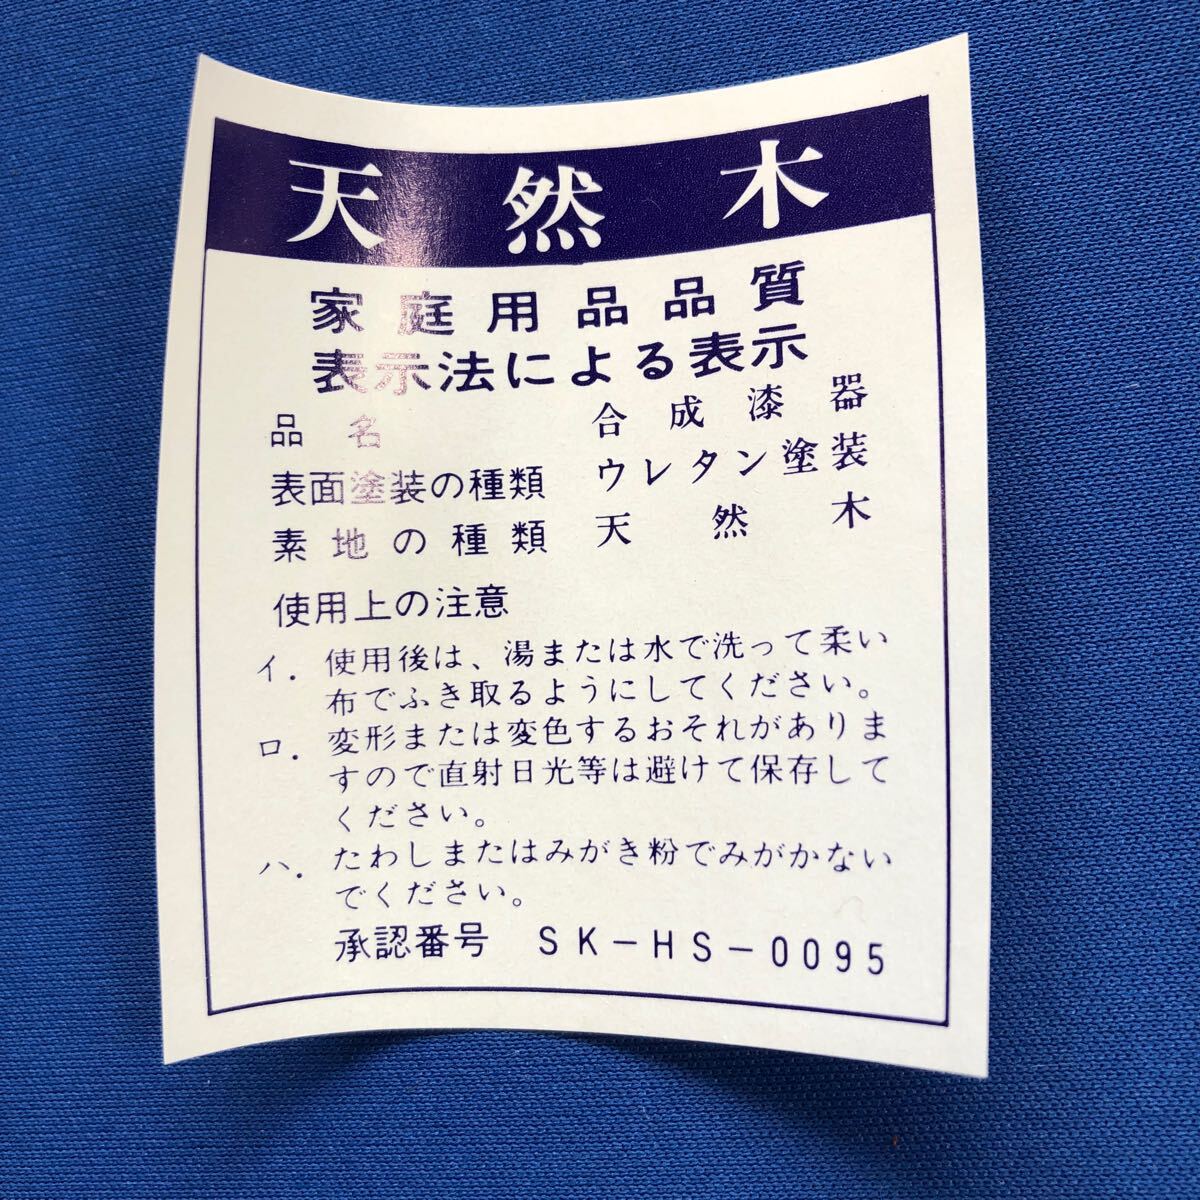 天然木
家庭用品品質
表示法による表示
品名 合成漆器
表面塗装の種類 ウレタン塗装
素地の種類 天然木
使用上の注意
イ. 使用後は、湯または水で洗って柔い
布でふき取るようにしてください。
ロ. 変形または変色するおそれがありま
すので直射日光等は避けて保存して
ください。
ハ. たわしまたはみがき粉でみがかない
でください。
承認番号 SK-HS-0095